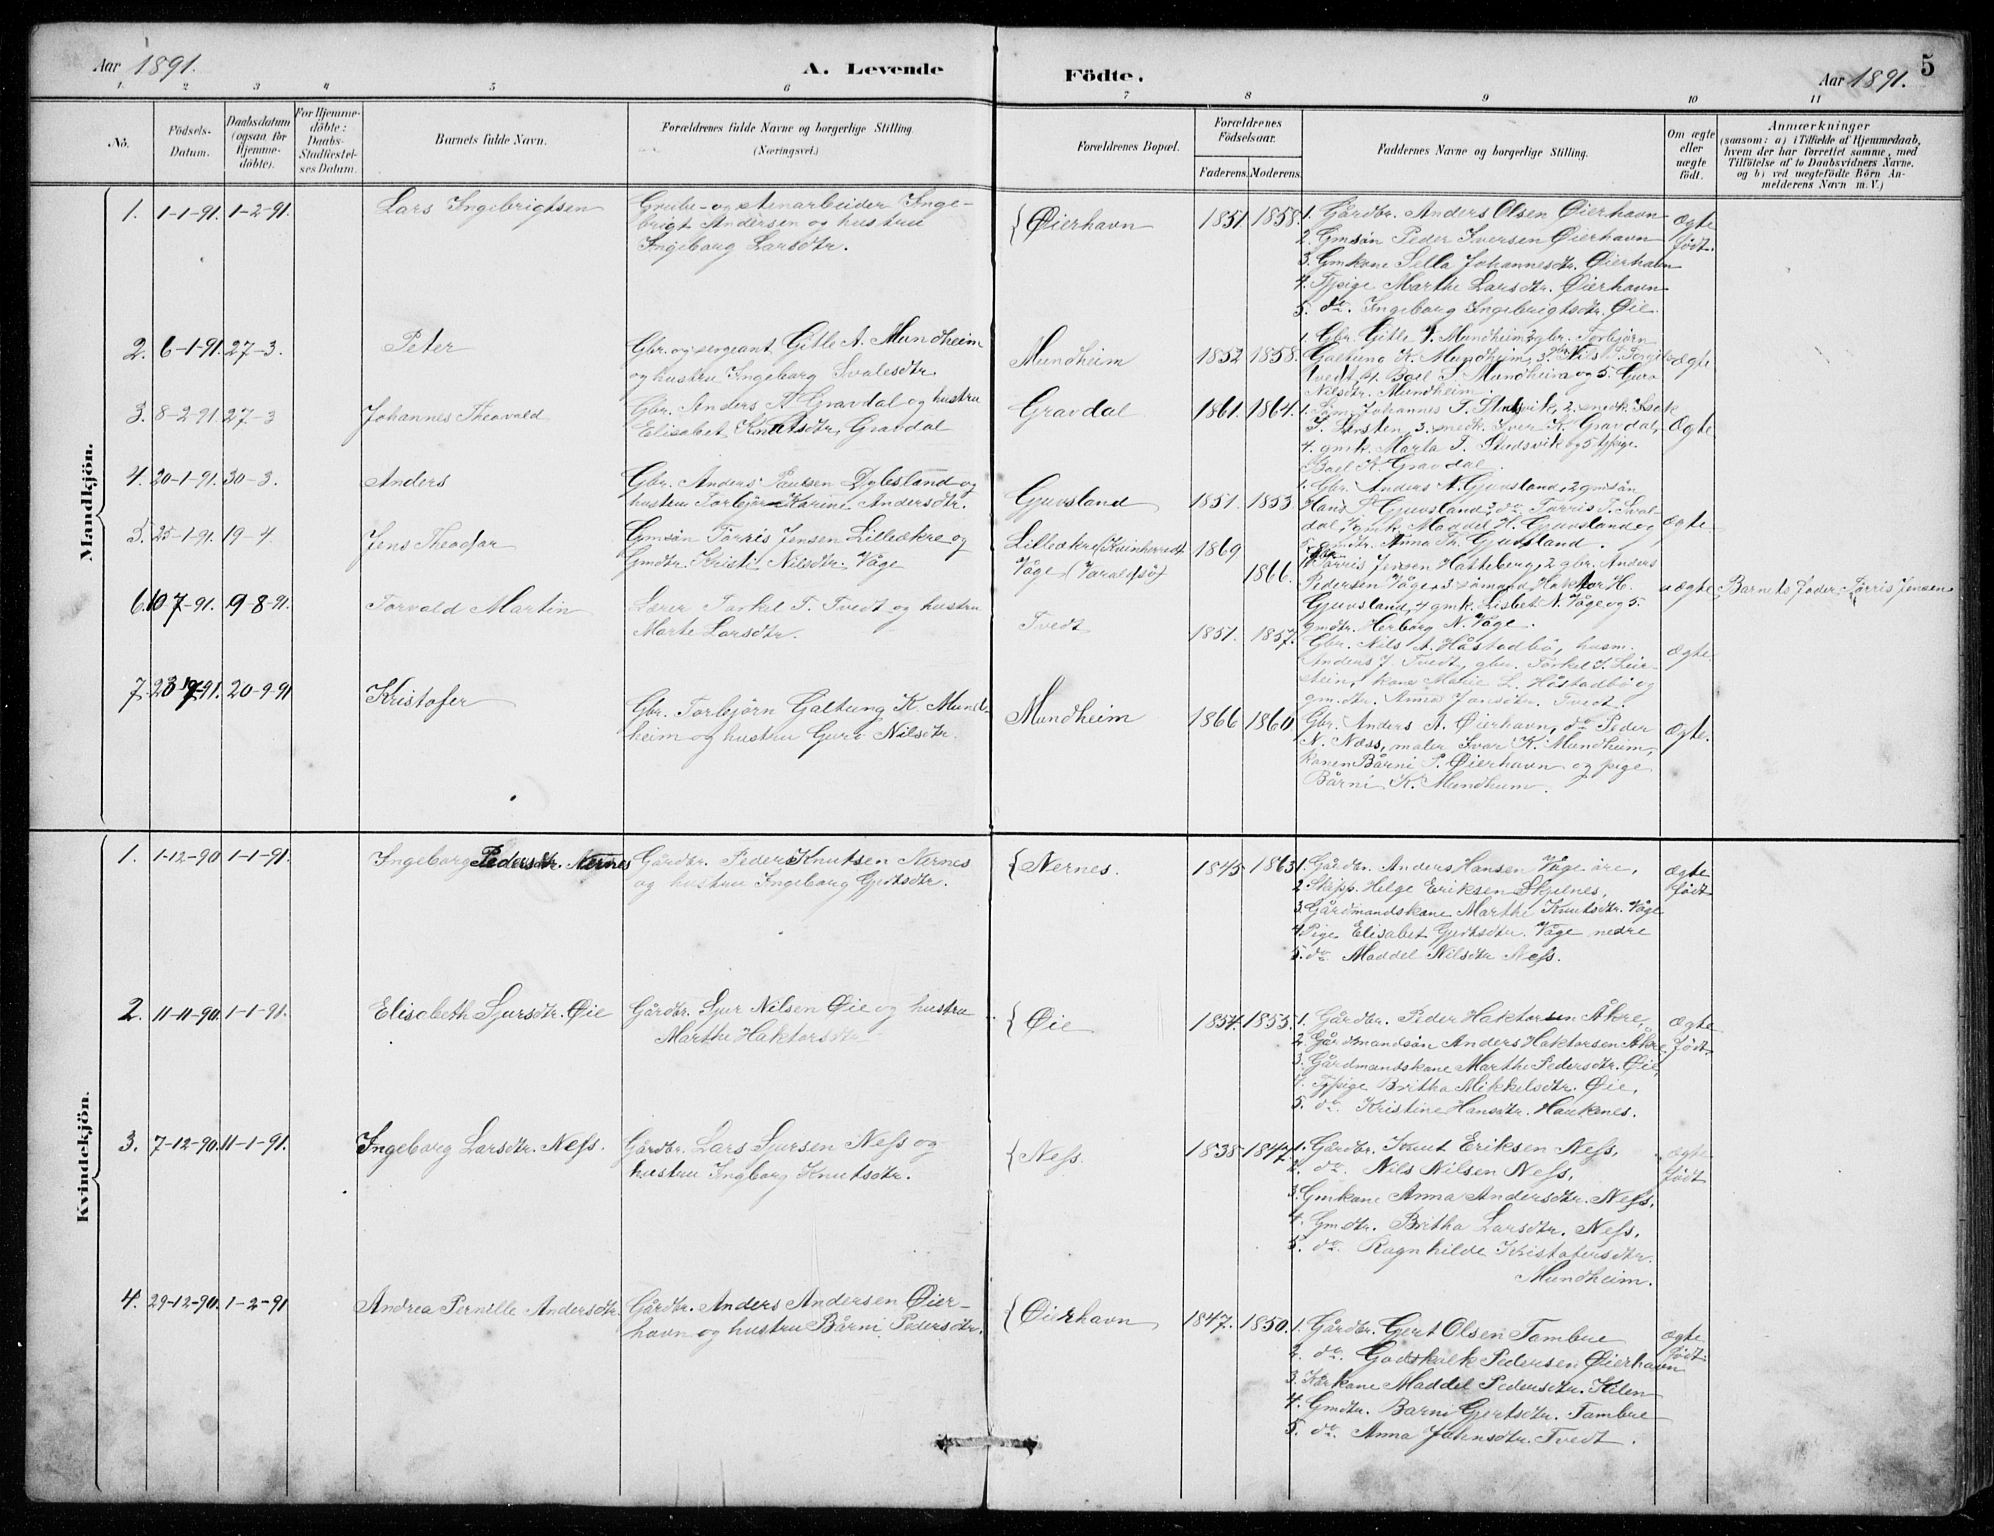 Aar 1891.
A. Levende
Födte.
Aar 1891.
5
1. 2 3 4 5 6 7 8 9 10 11
No.
Födsels-
Datum.
Daabsdatum
(ogsaa for
Hjemme-
döbte).
For Hjemme-
döbte:
Daabs-
Stadfæstel-
ses Datum.
Barnets fulde Navn.
Forældrenes fulde Navne og borgerlige Stilling
(Næringsvei.)
Forældrenes Bopæl.
Forældrenes
Födselsaar.
Faderens. Moderens.
Faddernes Navne og borgerlige Stilling.
Om ægte
eller
uægte
födt.
Anmærkninger
(saasom: a) i Tilfælde af Hjemmedaab,
hvem der har forrettet samme, med
Tilföielse af to Daabsvidners Navne.
og b) ved uægtefödte Börn An-
melderens Navn m. V.)
Mandkjön.
1. 1-1-91. 1-2-91. Lars Ingebrigtsen
Grube- og stenarbeider Inge-
brigt Andersen og hustru
Ingeborg Larsdtr.
Øierhavn 1851. 1858.
1. Gårdbr. Anders Olsen Øierhavn
2. Gmsön Peder Iversen Øierhavn
3. Gmkone Sella Johannesdtr. Øierhavn
4. Tjpige Marthe Larsdtr. Øierhavn
5. do. Ingeborg Ingebrigtsdtr. Øie
ægte
født.
2. 6-1-91. 27-3. Peter
Gbr. og sergeant Gitle A. Mundheim
og hustru Ingeborg Svalesdtr.
Mundheim 1852 1858.
1. Gbr. Gitle J. Mundheim 2 gbr. Torbjörn
Galtung K. Mundheim, 3. gbr. Nils
Tvedt, 4. Boel T. Mundheim og 5. Guro
Nilsdtr. Mundheim.
ægte
3. 8-2-91 27-3 Johannes Theovald
Gbr. Anders A Gravdal og hustru
Elisabet Knutsdtr. Gravdal
Gravdal 1861. 1864.
1. Søm. Johannes T. 2. snedk. Isak
3. snedk. Iver K. Gravdal,
4. gmk. Marta T. Studsvik og 5 tjpige
Boel A. Gravdal.
Ægte
4. 20-1-91. 30-3. Anders
Gbr. Anders Paulsen Dybsland og
hustru Torbjör Karine Andersdtr.
Gjuvsland 1851. 1853.
1. Gbr. Anders N. Gjuvsland, 2 gmsön
Hans Gjuvsland, 3 do. Torris T. Sval-
dal, 4 gmk. Maddel H. Gjuvsland og
5. gmdtr. Anna Th. Gjuvsland.
ægte
5. 25-1-91. 19-4 Jens Theodor
Gmsön Törris Jensen Lilleækre og
Gmdtr. Kristi Nilsdtr. Våge
Lilleækre (Kvinherred)
Våge (Varaldsö)
1869
1866.
Torris Jensen Hatteberg, 2 gbr. Anders
Pedersen Våge, 3 sömand Haktor H.
Gjuvsland, 4 gmk. Lisbet N. Våge og 5.
gmdtr. Herborg N. Våge.
uægte Barnets fader: Törris Jensen
6. 10 7-91. 9-8-91. Torvald Martin
Lærer Torkel T. Tvedt og hustru
Marte Larsdtr.
Tvedt 1851. 1857.
Gbr. Nils A. Håstadbö, husm.
Anders J. Tvedt, gbr. Torkel
kone Marie L. Håstadbö og
gm.dtr. Anna Jonsdtr. Tvedt.
ægte.
7. 20-9-91 Kristofer
Gbr. Torbjörn Galtung K. Mund-
heim og hustru Guro Nilsdtr.
Mundheim 1866 1860.
Gbr. Anders A. Øierhavn, do. Peder
N. Næss, maler Ivar K. Mundheim,
konen Bårni P. Øierhavn og pige
Bårni K. Mundheim.
Ægte.
Kvindekjön.
1. 1-12-90 1-1-91. Ingeborg Pedersdtr. Nernes
Gårdbr. Peder Knutsen Nernes
og hustru Ingeborg Gjertsdtr.
Nernes. 1845 1863
1. Gårdbr. Anders Hansen Våge öre,
2 Skipp. Helge Eriksen Skjelnes,
3. Gårdmandskone Marthe Knutsdtr. Våge
4. Pige Elisabet Gjertsdtr. Våge nedre
5. do. Maddel Nilsdtr Ness.
ægte
født
2. 11-11-90. 1-1-91. Elisabeth Sjursdtr. Øie
Gårdbr. Sjur Nilsen Øie og hustru
Marthe Haktorsdtr
Øie 1854. 1855.
1. Gårdbr. Peder Haktorsen Åkre,
2. Gårdmandsön Anders Haktorsen Åkre,
3. Gårdmandskone Marthe Pedersdtr. Øie,
4. Tjpige Britha Mikkelsdtr. Øie,
5. do. Kristine Hansdtr. Haukenes.
ægte
født.
3. 7-12-90. 11-1-91. Ingeborg Larsdtr. Ness.
Gårdbr. Lars Sjursen Ness og
hustru Ingborg Knutsdtr.
Ness. 1838 1847.
1. Gårdbr. Knut Eriksen Ness,
2. do. Nils Nilsen Ness,
3. Gmkone Anna Andersdtr. Ness,
4. Gmdtr. Britha Larsdtr. Ness,
5. do. Ragnhilde Kristofersdtr.
Mundheim.
ægte
født
4. 29-12-90. 1-2-91 Andrea Pernille Andersdtr.
Gårdbr. Anders Andersen Øier-
havn og hustru Bårni Pedersdtr.
Øierhavn 1847. 1850.
1. Gårdbr. Gjert Olsen Tambue
2. do. Godskalk Pedersen Øierhavn
3. Kårkone Maddel Pedersdtr. Kilen
4. Gmdtr. Barni Gjertsdtr. Tambue
5. do. Anna Johnsdtr. Tvedt.
ægte
født.